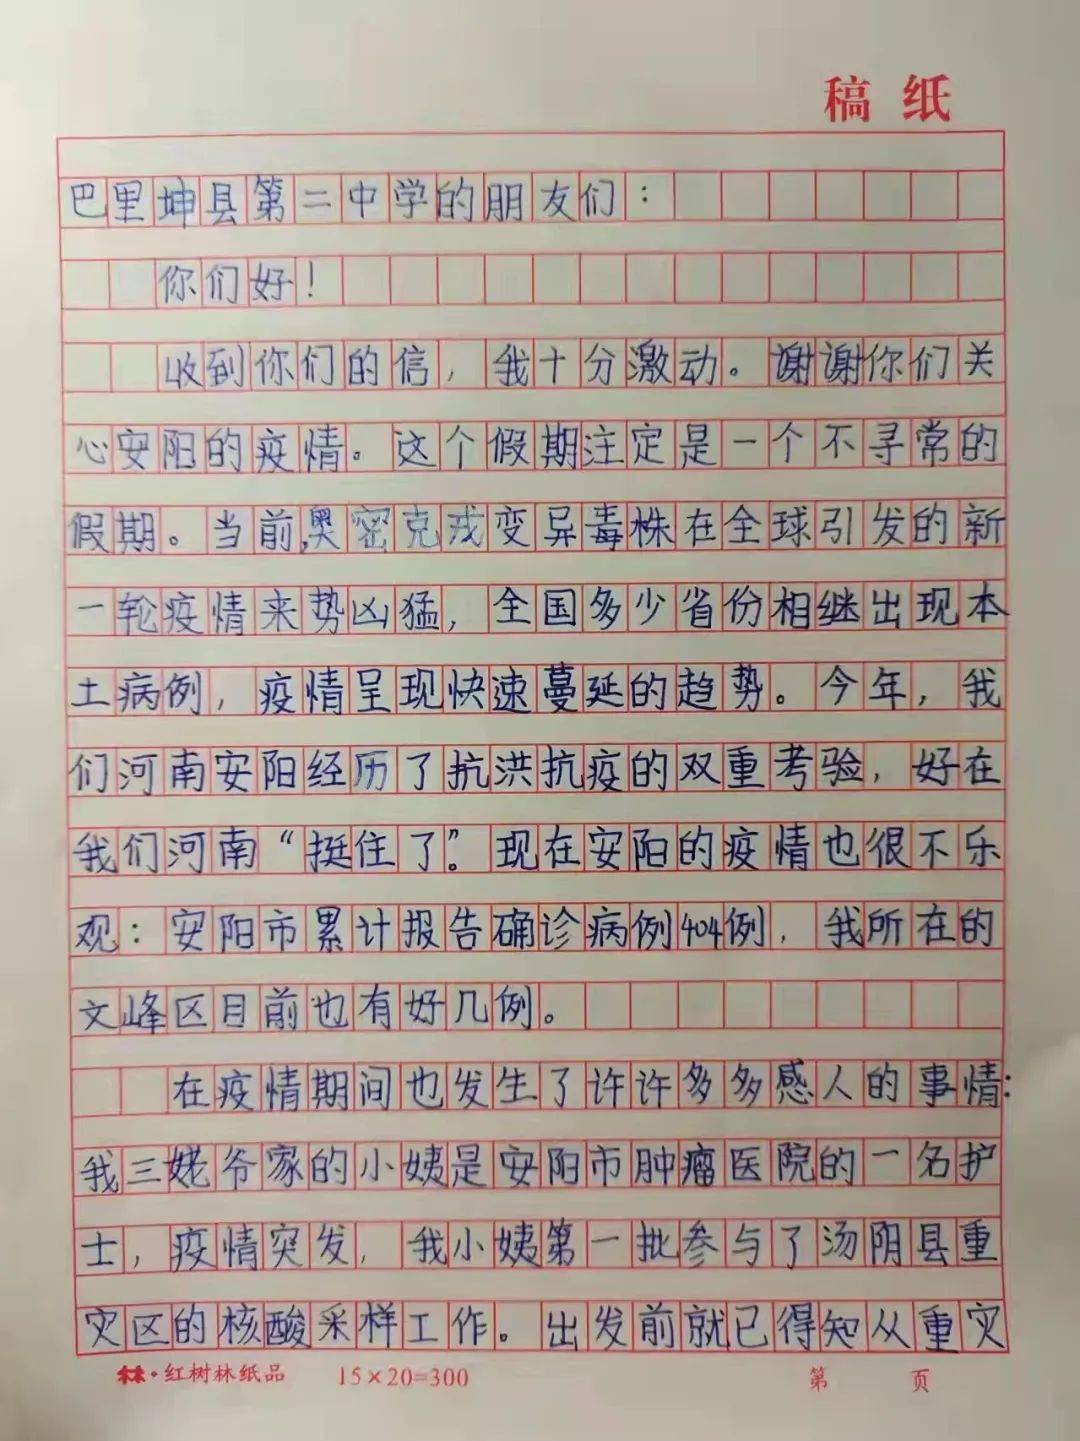 稿纸
巴里坤县第二中学的朋友们：
你们好！
收到你们的信，我十分激动。谢谢你们关
心安阳的疫情。这个假期注定是一个不寻常的
假期。当前,奥密克戎变异毒株在全球引发的新
一轮疫情来势凶猛，全国多少省份相继出现本
土病例，疫情呈现快速蔓延的趋势。今年，我
们河南安阳经历了抗洪抗疫的双重考验，好在
我们河南“挺住了”。现在安阳的疫情也很不乐
观：安阳市累计报告确诊病例404例，我所在的
文峰区目前也有好几例。
在疫情期间也发生了许许多多感人的事情：
我三姥爷家的小姨是安阳市肿瘤医院的一名护
士，疫情突发，我小姨第一批参与了汤阴县重
灾区的核酸采样工作。出发前就已得知从重灾
红树林纸品 15×20=300 第 页